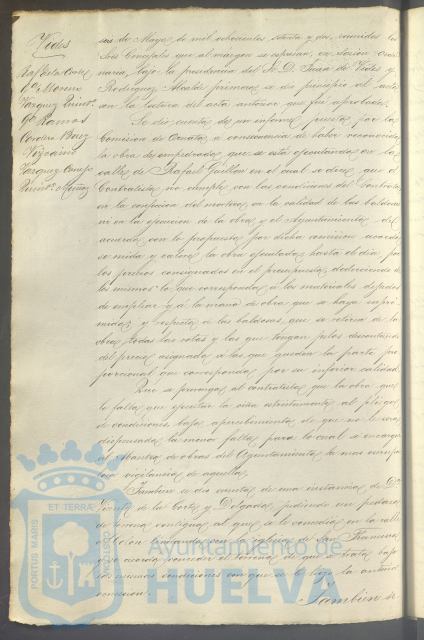 Vides
Moreno
Vazquez
Ramos
Cordero
Vizcaino
Vazquez
Muñoz
de Mayo de mil ochocientos setenta y dos, reunidos los
Sres Concejales que al márgen se espresan, en sesion ordi-
naria, bajo la presidencia del Sr. D. Juan de Vides y
Rodriguez Alcalde primero, se dio principio al acto
con la lectura del acta anterior que fue aprobada.
Se dio cuenta de un informe puesto por la
Comision de Ornato, á consecuencia de haber reconocido
la obra de empedrado que se está ejecutando en la
calle de Rafael Guillen en el cual se dice que el
Contratista no cumple con las condiciones del contrato
en la confeccion del mortero, en la calidad de las baldosas
ni en la ejecucion de la obra, y el Ayuntamiento de
acuerdo con lo propuesto por dicha comision acordó
se mida y valore la obra ejecutada hasta el dia por
los precios consignados en el presupuesto, deduciendo de
los mismos lo que corresponda á los materiales dejados
de emplear y á la mano de obra que se haya supri-
mido, y respecto á las baldosas, que se retiren de la
obra todas las rotas y las que tengan pelos descontando
del precio asignado á las que queden la parte pro
porcional que corresponda por su inferior calidad.
Que se prevenga al contratista que la obra que
le falta que ejecutar la ciña estrictamente al pliego
de condiciones, bajo apercibimiento de que no le será
dispensada la menor falta para lo cual se encarga
al Maestro de obras del Ayuntamiento la mas esmerada
vigilancia de aquella.
Tambien se dio cuenta de una instancia de Dª
de la Corte y Delgado, pidiendo un pedazo
de terreno contiguo al que se le concedió en la calle
lindando con la Iglesia de San Francisco
y se acordó conceder el terreno de que se trata bajo
las mismas condiciones con que se le hizo la anterior
concesion.
Tambien se
PORTUS MARIS
ET TERRAE
CUSTODIA
Ayuntamiento de
HUELVA